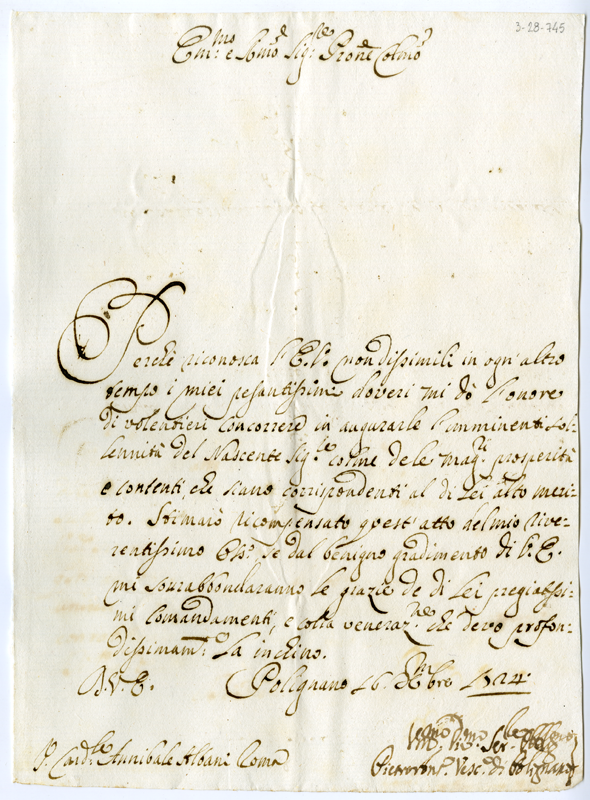 3-28-745
Em.mo e Rmo Sig.re Prone Colmo
Perche riconosca l'E.V. non dissimili in ogn'altro
tempo i miei pesantissimi doveri mi dò l'onore
di volentieri concorrere in augurarle l'imminenti sol-
lennità del Nascente Sig.re colme dele mag.ri prosperità
e contenti che siano corrispondenti al di Lei alto meri-
to. Stimarò ricompensato quest'atto del mio rive-
rentissimo Oss.o se dal benigno gradimento di V.E.
mi sourabbondaranno le grazie de di Lei pregiatissi-
mi comandamenti, e colla veneraz.ne che devo profon-
dissimam.te La inchino.
D.V.E. Polignano 16 Xmbre 1724
Pietro Vesc.o di Polignano
S. Card.le Annibale Albani Roma